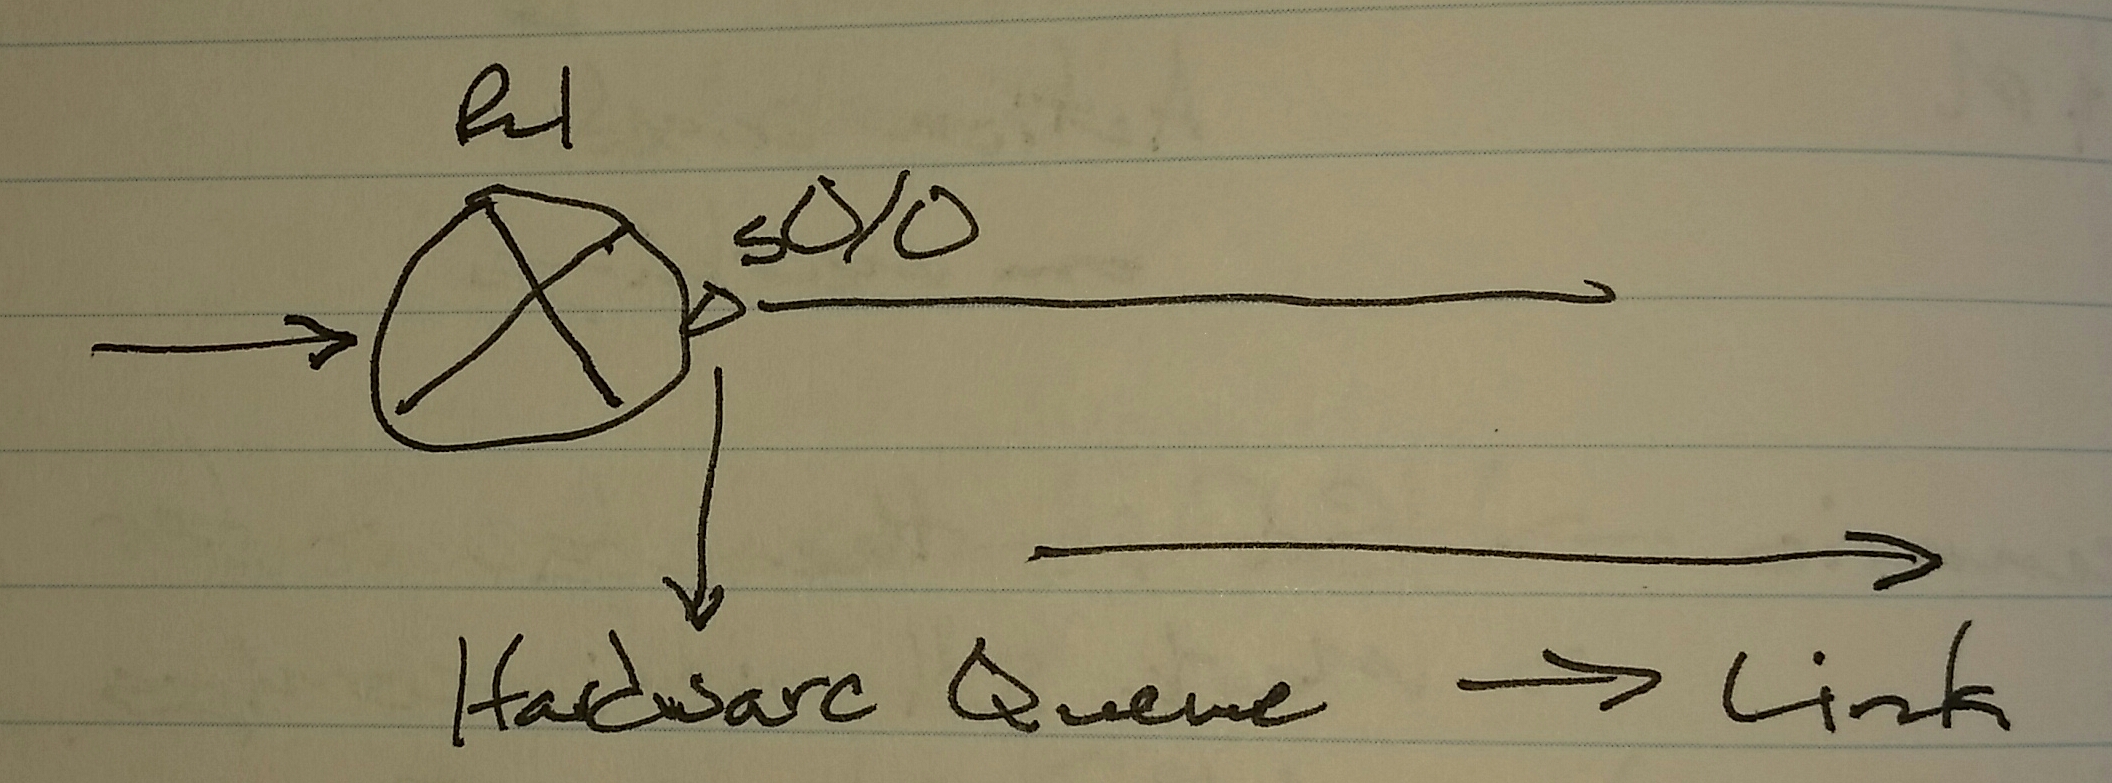 R1
s0/0
Hardware Queue → Link